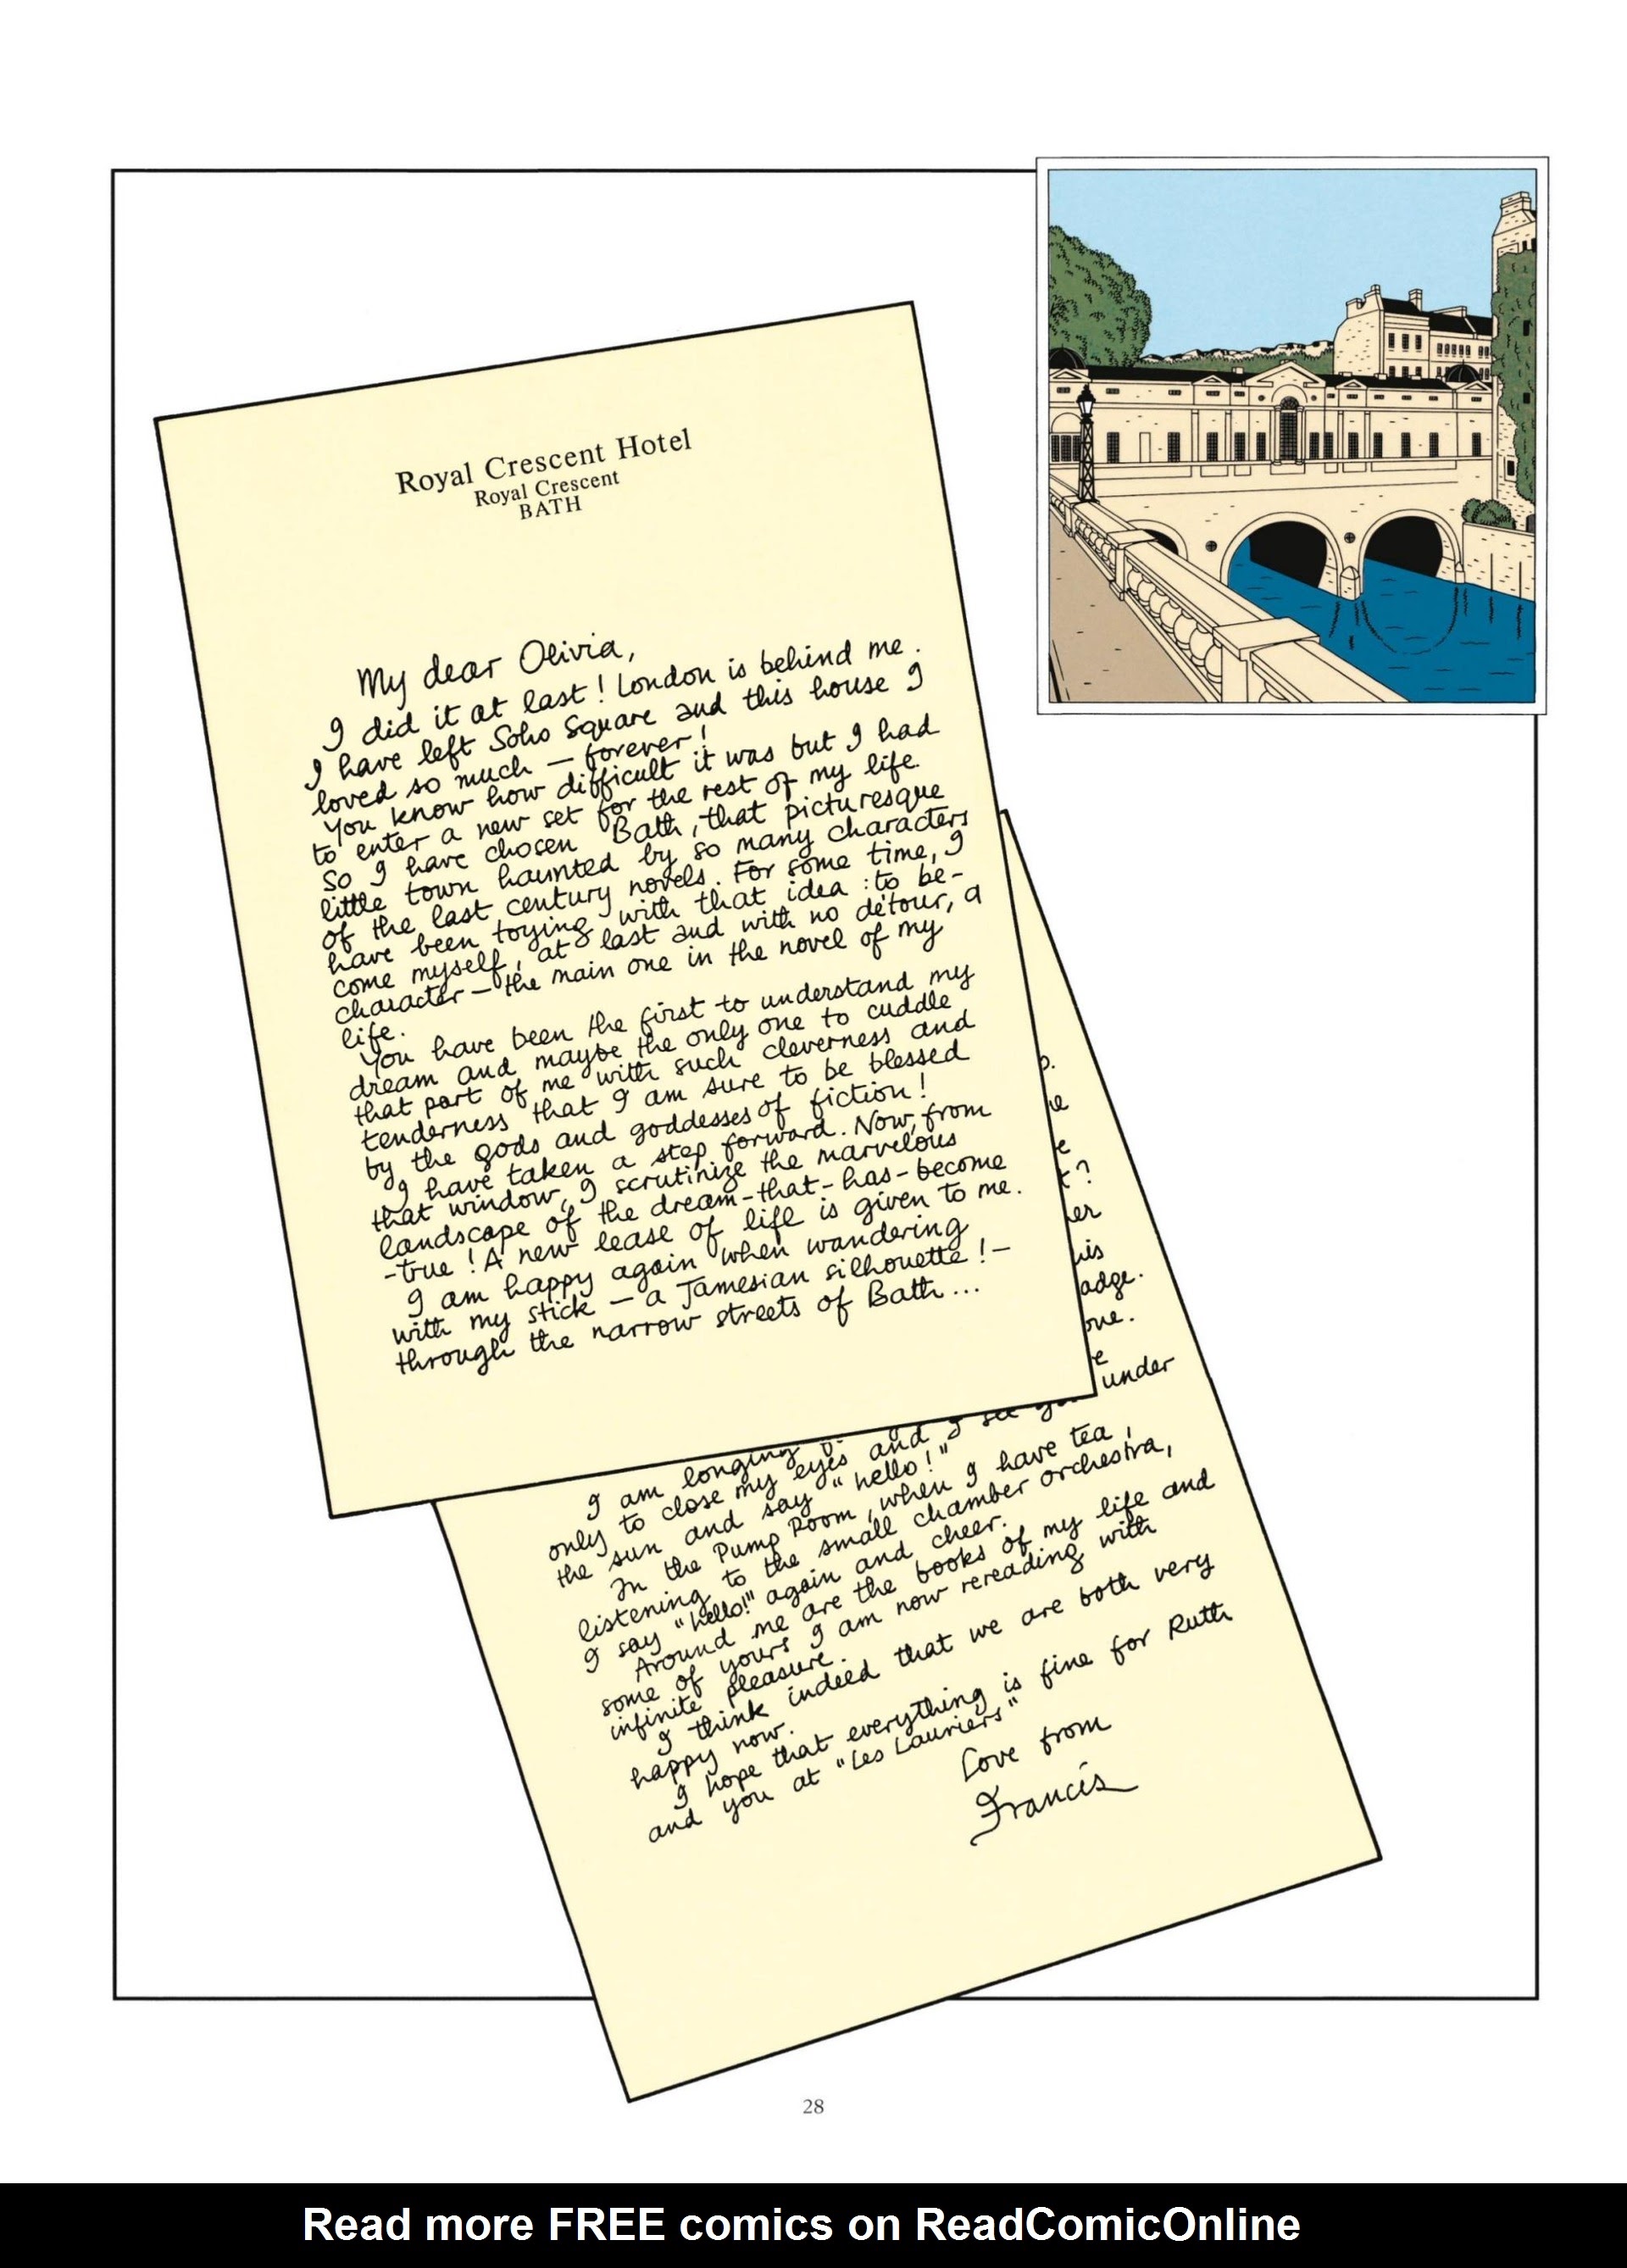 Royal Crescent Hotel
Royal Crescent
BATH
My dear Olivia,
I did it at last! London is behind me.
I have left Soho Square and this house I
loved so much — forever!
You know how difficult it was but I had
to enter a new set for the rest of my life.
So I have chosen Bath, that picturesque
little town haunted by so many characters
of the last century novels. For some time, I
have been toying with that idea : to be-
come myself, at last and with no détour, a
character — the main one in the novel of my
life.
You have been the first to understand my
dream and maybe the only one to cuddle
that part of me with such cleverness and
tenderness that I am sure to be blessed
by the gods and goddesses of fiction!
I have taken a step forward. Now, from
that window, I scrutinize the marvelous
landscape of the dream-that-has-become
-true! A new lease of life is given to me.
I am happy again when wandering
with my stick — a Jamesian silhouette! —
through the narrow streets of Bath...
?
his
adge.
under
I am longing
only to close my eyes and I see
the sun and say "hello!"
In the Pump Room, when I have tea,
listening to the small chamber orchestra,
I say "hello!" again and cheer.
Around me are the books of my life and
some of yours I am now rereading with
infinite pleasure.
I think indeed that we are both very
happy now.
I hope that everything is fine for Ruth
and you at "Les Lauriers"
Love from
Francis
28
Read more FREE comics on ReadComicOnline